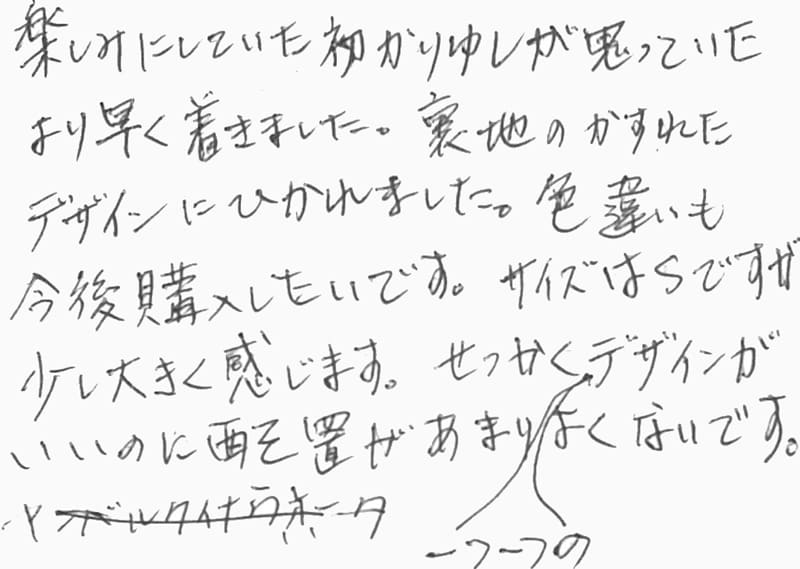 楽しみにしていた初かりゆしが思っていた
より早く着きました。裏地のかすれた
デザインにひかれました。色違いも
今後購入したいです。サイズはSですが
少し大きく感じます。せっかくデザインが
いいのに配置があまりよくないです。
一つ一つの